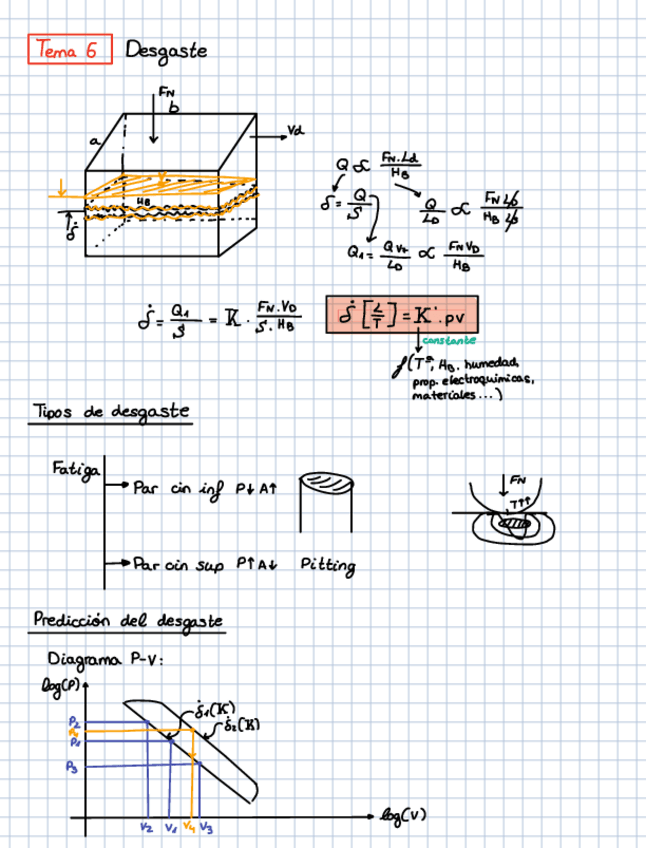 Tema 6 Desgaste
FN
b
a
Vd
HB
δ̇
Q ∝ FN.Ld / HB
δ = Q / S
Q / LD ∝ FN LD / HB LD
Q1 = Q Vt / LD ∝ FN VD / HB
δ̇ = Q1 / S = K · FN.VD / S.HB
δ̇ [L/T] = K'.pv
constante
f(Tª, HB, humedad,
prop. electroquimicas,
materiales...)
Tipos de desgaste
Fatiga
Par cin inf P↓ A↑
Par cin sup P↑ A↓ Pitting
FN
T↑↑
Predicción del desgaste
Diagrama P-V:
log(P)
δ̇1(K)
δ̇2(K)
P2
P4
P1
P3
V2 V1 V4 V3
log(V)